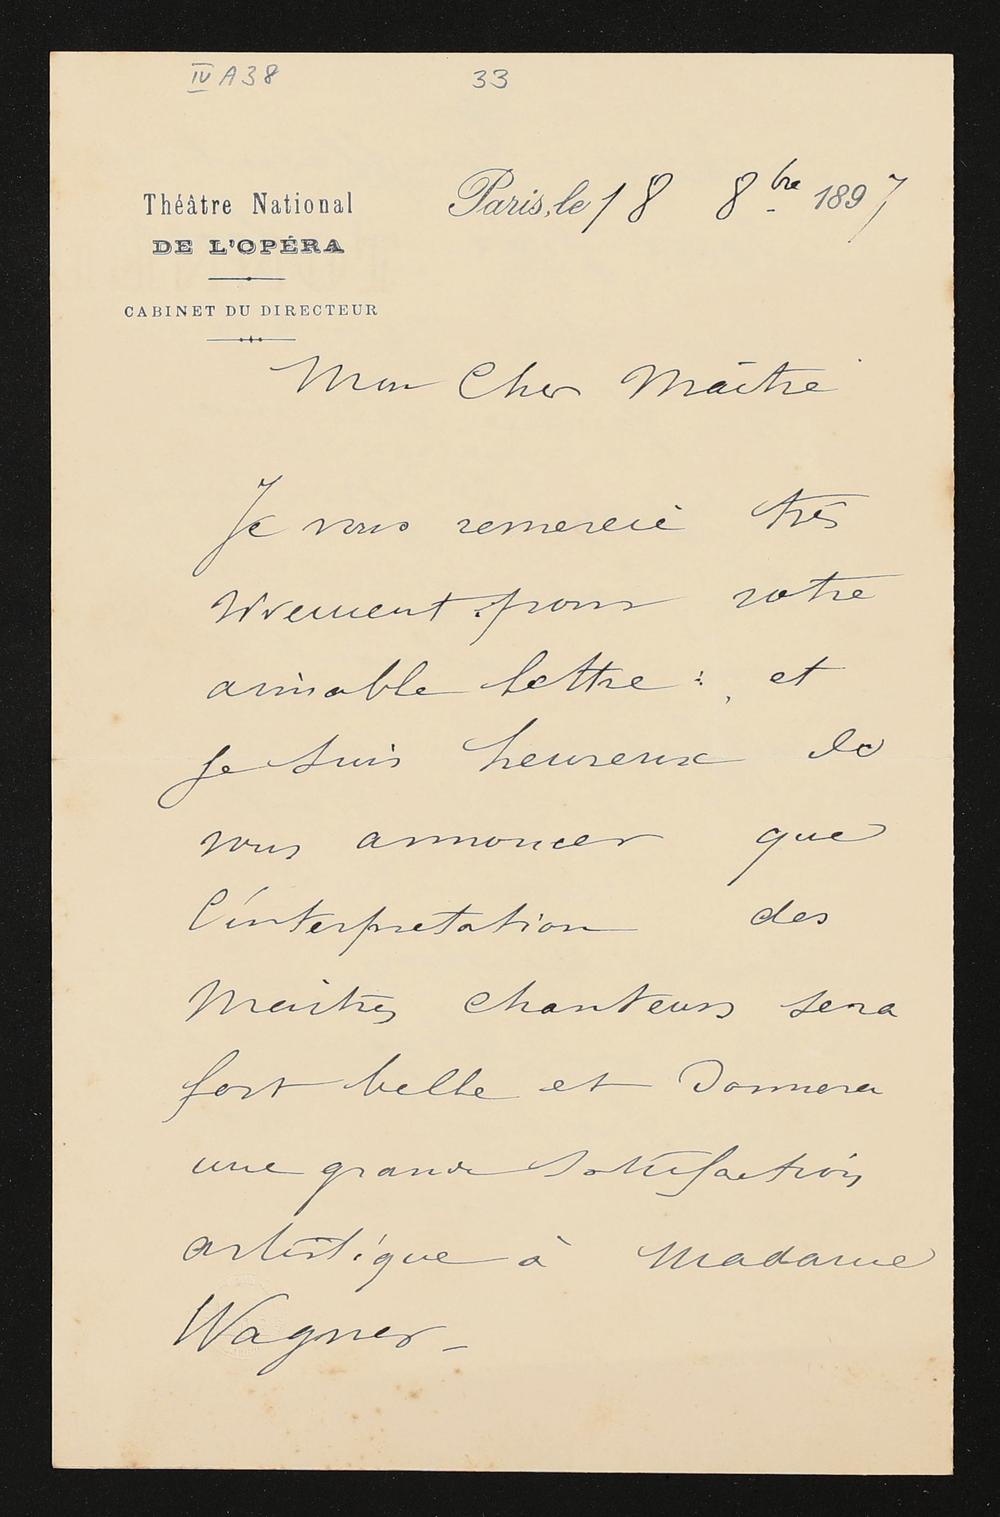 IV A 38 33
Théâtre National
DE L'OPÉRA
CABINET DU DIRECTEUR
Paris, le 18 8bre 1897
Mon Cher Maître
Je vous remercie très
vivement pour votre
aimable lettre : et
je suis heureux de
vous annoncer que
l'interpretation des
Maitres chanteurs sera
fort belle et donnera
une grande satisfaction
artistique à Madame
Wagner _